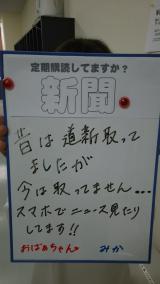 定期購読してますか?
新聞
昔は道新取って
ましたが
今は取ってません…
スマホでニュース見たり
してます!!
おばあちゃん
みか